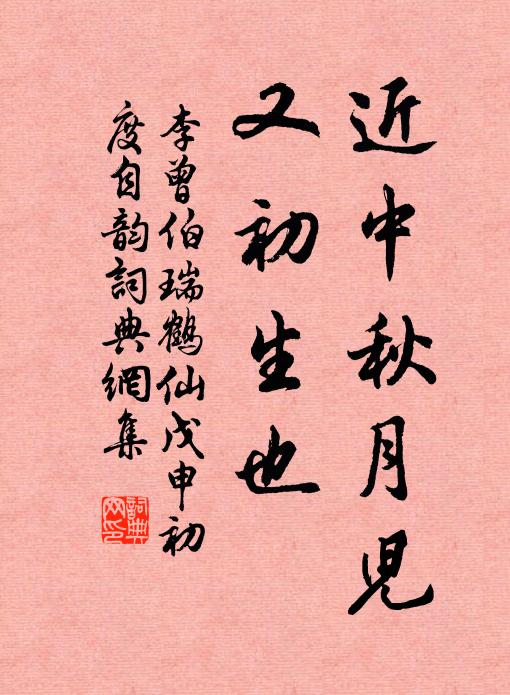 近中秋月儿
又初生也
李曾伯瑞鹤仙戊申初
度自韵詞典網集
詞典网印